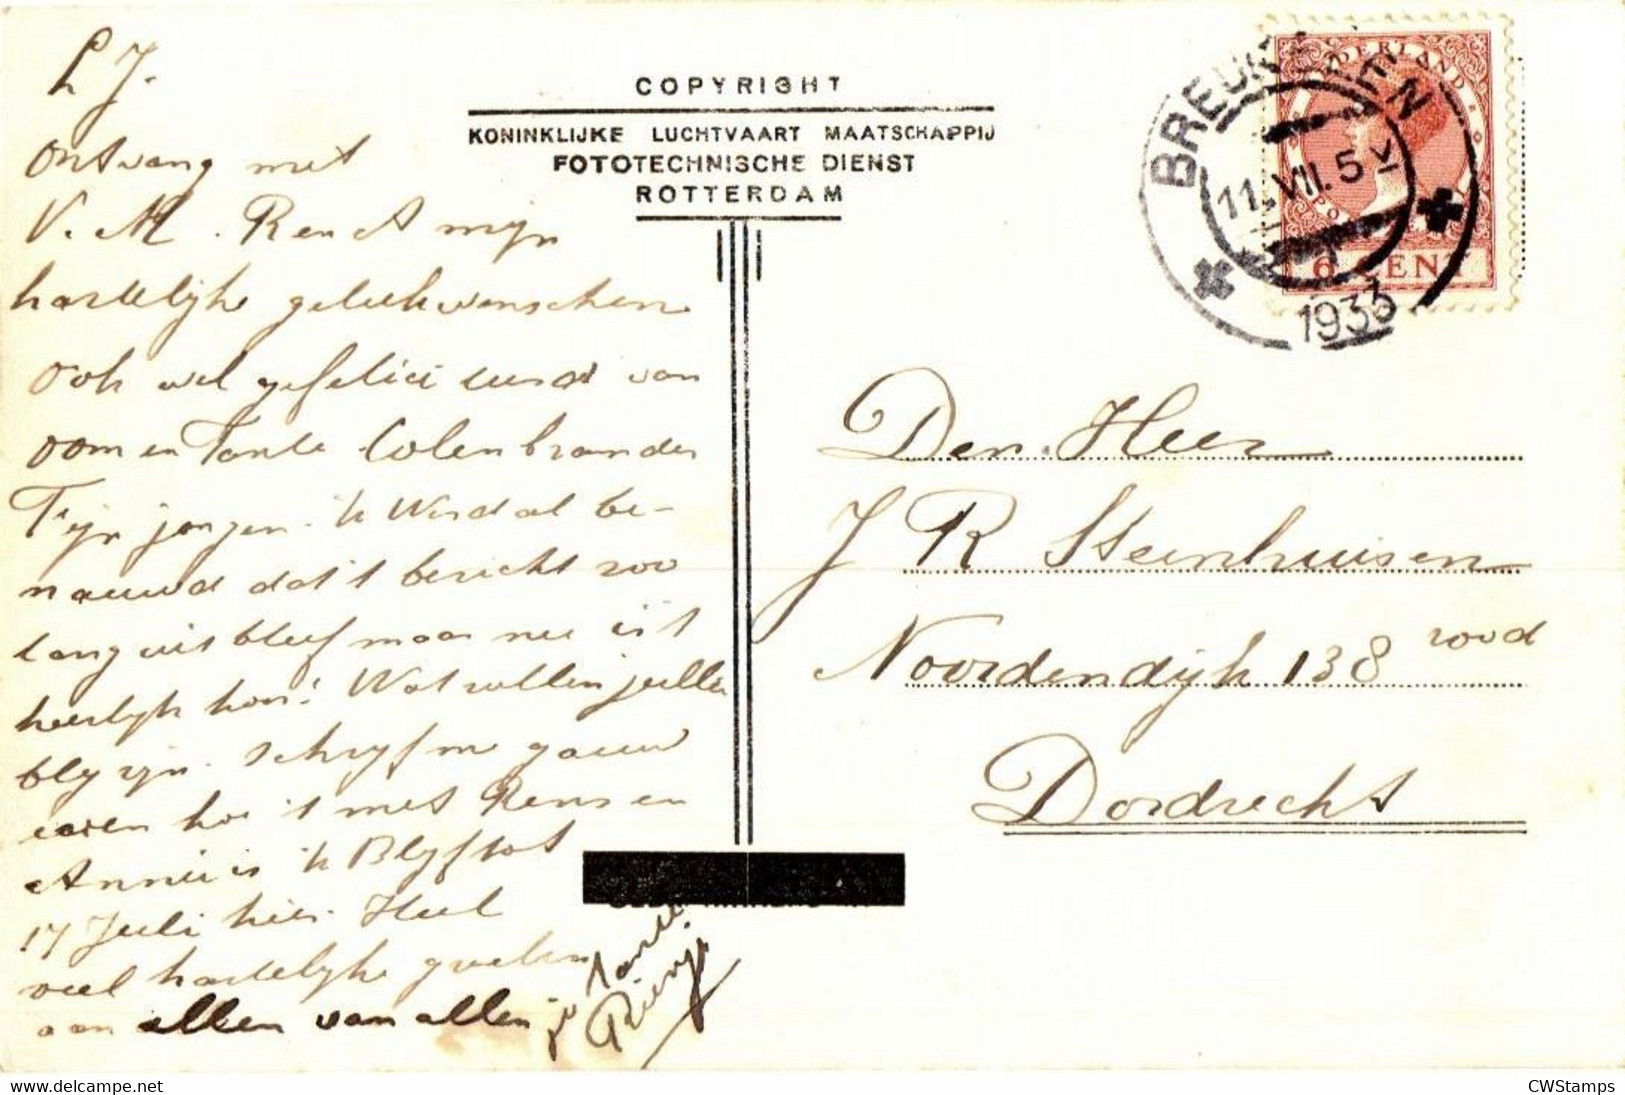 L J.
Ontvang met
V. M. Ren A mijn
hartelijke gelukwenschen
Ook wel gefeliciteerd van
oom en Tante Colenbrander
Fijn jongen. 'k Werd al be-
nauwd dat 't bericht zoo
lang uit bleef maar nu is 't
heerlijk hoor! Wat zullen jullie
bly zyn. Schryf me gauw
even hoe 't met Rens en
Annie is 'k Blyf tot
17 Juli hier. Heel
veel hartelijke groeten
aan allen van allen
je Tante
COPYRIGHT
KONINKLIJKE LUCHTVAART MAATSCHAPPIJ
FOTOTECHNISCHE DIENST
ROTTERDAM
BREUKELEN
11.VII.5 V
1933
NEDERLAND
6 CENT
Den Heer
J R Steenhuisen
Noordendijk 138 rood
Dordrecht
© any-lotx
CWStamps